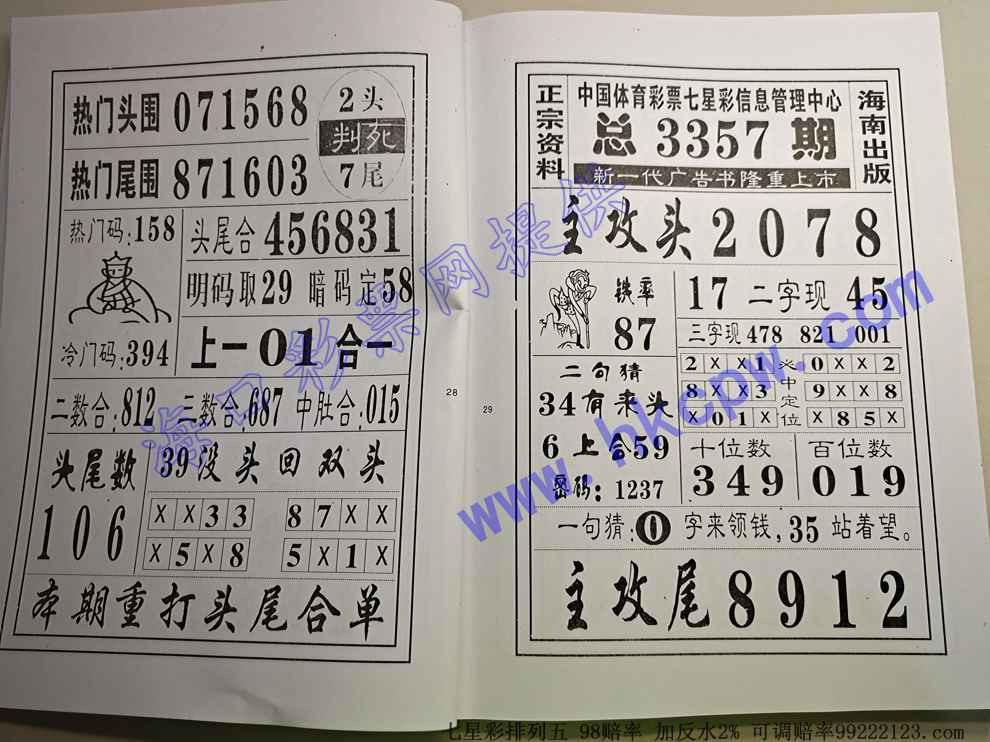 热门头围 071568
热门尾围 871603
2头
判死
7尾
热门码:158
头尾合 456831
明码取29 暗码定58
冷门码:394
上一01合一
二数合:812 三数合:687 中肚合:015
头尾数
106
39没头回双头
XX33 87XX
X5X8 5X1X
本期重打头尾合单
28
正宗资料
中国体育彩票七星彩信息管理中心
总3357期
新一代广告书隆重上市
海南出版
主攻头2078
铁率
87
17 二字现 45
三字现 478 821 001
二句猜
34有来头
6上合59
密码:1237
2XX1
8XX3
X01X
必中定位
0XX2
9XX8
X85X
十位数
349
百位数
019
一句猜:0字来领钱,35站着望。
主攻尾8912
29
海口彩票网提供
www.hkcpw.com
七星彩排列五 98赔率 加反水2% 可调赔率99222123.com